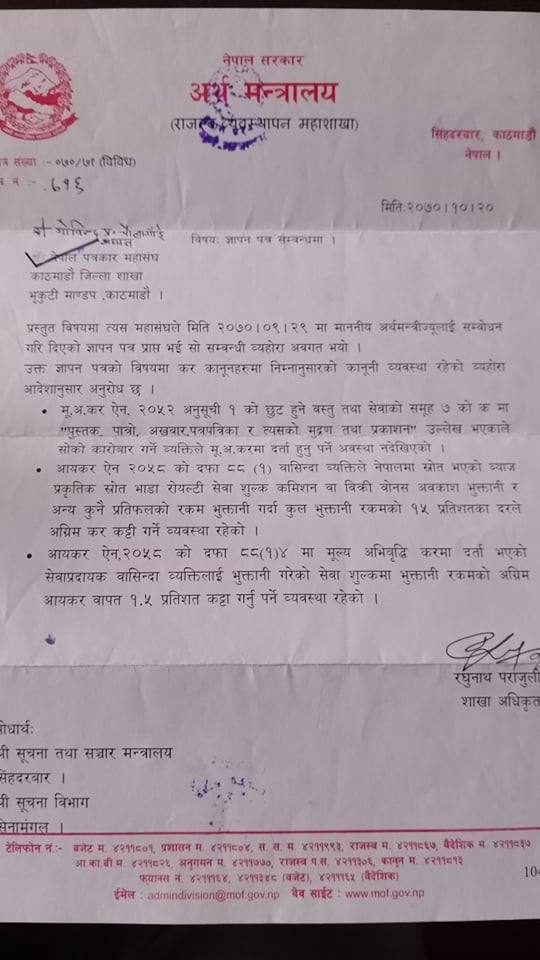 नेपाल सरकार
अर्थ मन्त्रालय
(राजस्व व्यवस्थापन महाशाखा)
सिंहदरबार, काठमाडौं
नेपाल ।
त्र संख्या :- ०७०/७१ (विविध)
नं :- ६१६
मिति:२०७०।१०।२०
विषय: ज्ञापन पत्र सम्बन्धमा ।
श्री गोविन्द
नेपाल पत्रकार महासंघ
काठमाडौं जिल्ला शाखा
भृकुटी माण्डप ,काठमाडौं ।
प्रस्तुत विषयमा त्यस महासंघले मिति २०७०।०९।२९ मा माननीय अर्थमन्त्रीज्यूलाई सम्बोधन
गरि दिएको ज्ञापन पत्र प्राप्त भई सो सम्बन्धी व्यहोरा अवगत भयो ।
उक्त ज्ञापन पत्रको विषयमा कर कानूनहरुमा निम्नानुसारको कानूनी व्यवस्था रहेको व्यहोरा
आदेशानुसार अनुरोध छ ।
• मू.अ.कर ऐन, २०५२ अनुसूची १ को छुट हुने वस्तु तथा सेवाको समूह ७ को क मा
"पुस्तक, पात्रो, अखवार,पत्रपत्रिका र त्यसको मुद्रण तथा प्रकाशन" उल्लेख भएकाले
सोको कारोबार गर्ने व्यक्तिले मू.अ.करमा दर्ता हुनु पर्ने अवस्था नदेखिएको ।
• आयकर ऐन २०५८ को दफा ८८ (१) वासिन्दा व्यक्तिले नेपालमा स्रोत भएको व्याज
प्रकृतिक स्रोत भाडा रोयल्टी सेवा शुल्क कमिशन वा विक्री वोनस अवकाश भुक्तानी र
अन्य कुनै प्रतिफलको रकम भुक्तानी गर्दा कुल भुक्तानी रकमको १५ प्रतिशतका दरले
अग्रिम कर कट्टी गर्ने व्यवस्था रहेको ।
• आयकर ऐन,२०५८ को दफा ८८(१)४ मा मूल्य अभिवृद्धि करमा दर्ता भएको
सेवाप्रदायक वासिन्दा व्यक्तिलाई भुक्तानी गरेको सेवा शुल्कमा भुक्तानी रकमको अग्रिम
आयकर वापत १.५ प्रतिशत कट्टा गर्नु पर्ने व्यवस्था रहेको ।
रघुनाथ पराजुली
शाखा अधिकृत
ोधार्थ:
री सूचना तथा सञ्चार मन्त्रालय
सिंहदरवार ।
री सूचना विभाग
सेनामंगल ।
टेलिफोन नं.:- बजेट म. ४२११८०१, प्रशासन म. ४२११८०४, स. स. म. ४२११९९३, राजस्व म. ४२११८६७, वैदेशिक म. ४२११८३७
आ.का.बी म. ४२११८२६, अनुगमन म. ४२११७७०, राजस्व प.स. ४२११३०६, कानून म. ४२११८१३
फ्याक्स नं. ४२१११६४, ४२११३४८ (बजेट), ४२१११६५ (वैदेशिक)
ईमेल : admindivision@mof.gov.np वेब साईट : www.mof.gov.np